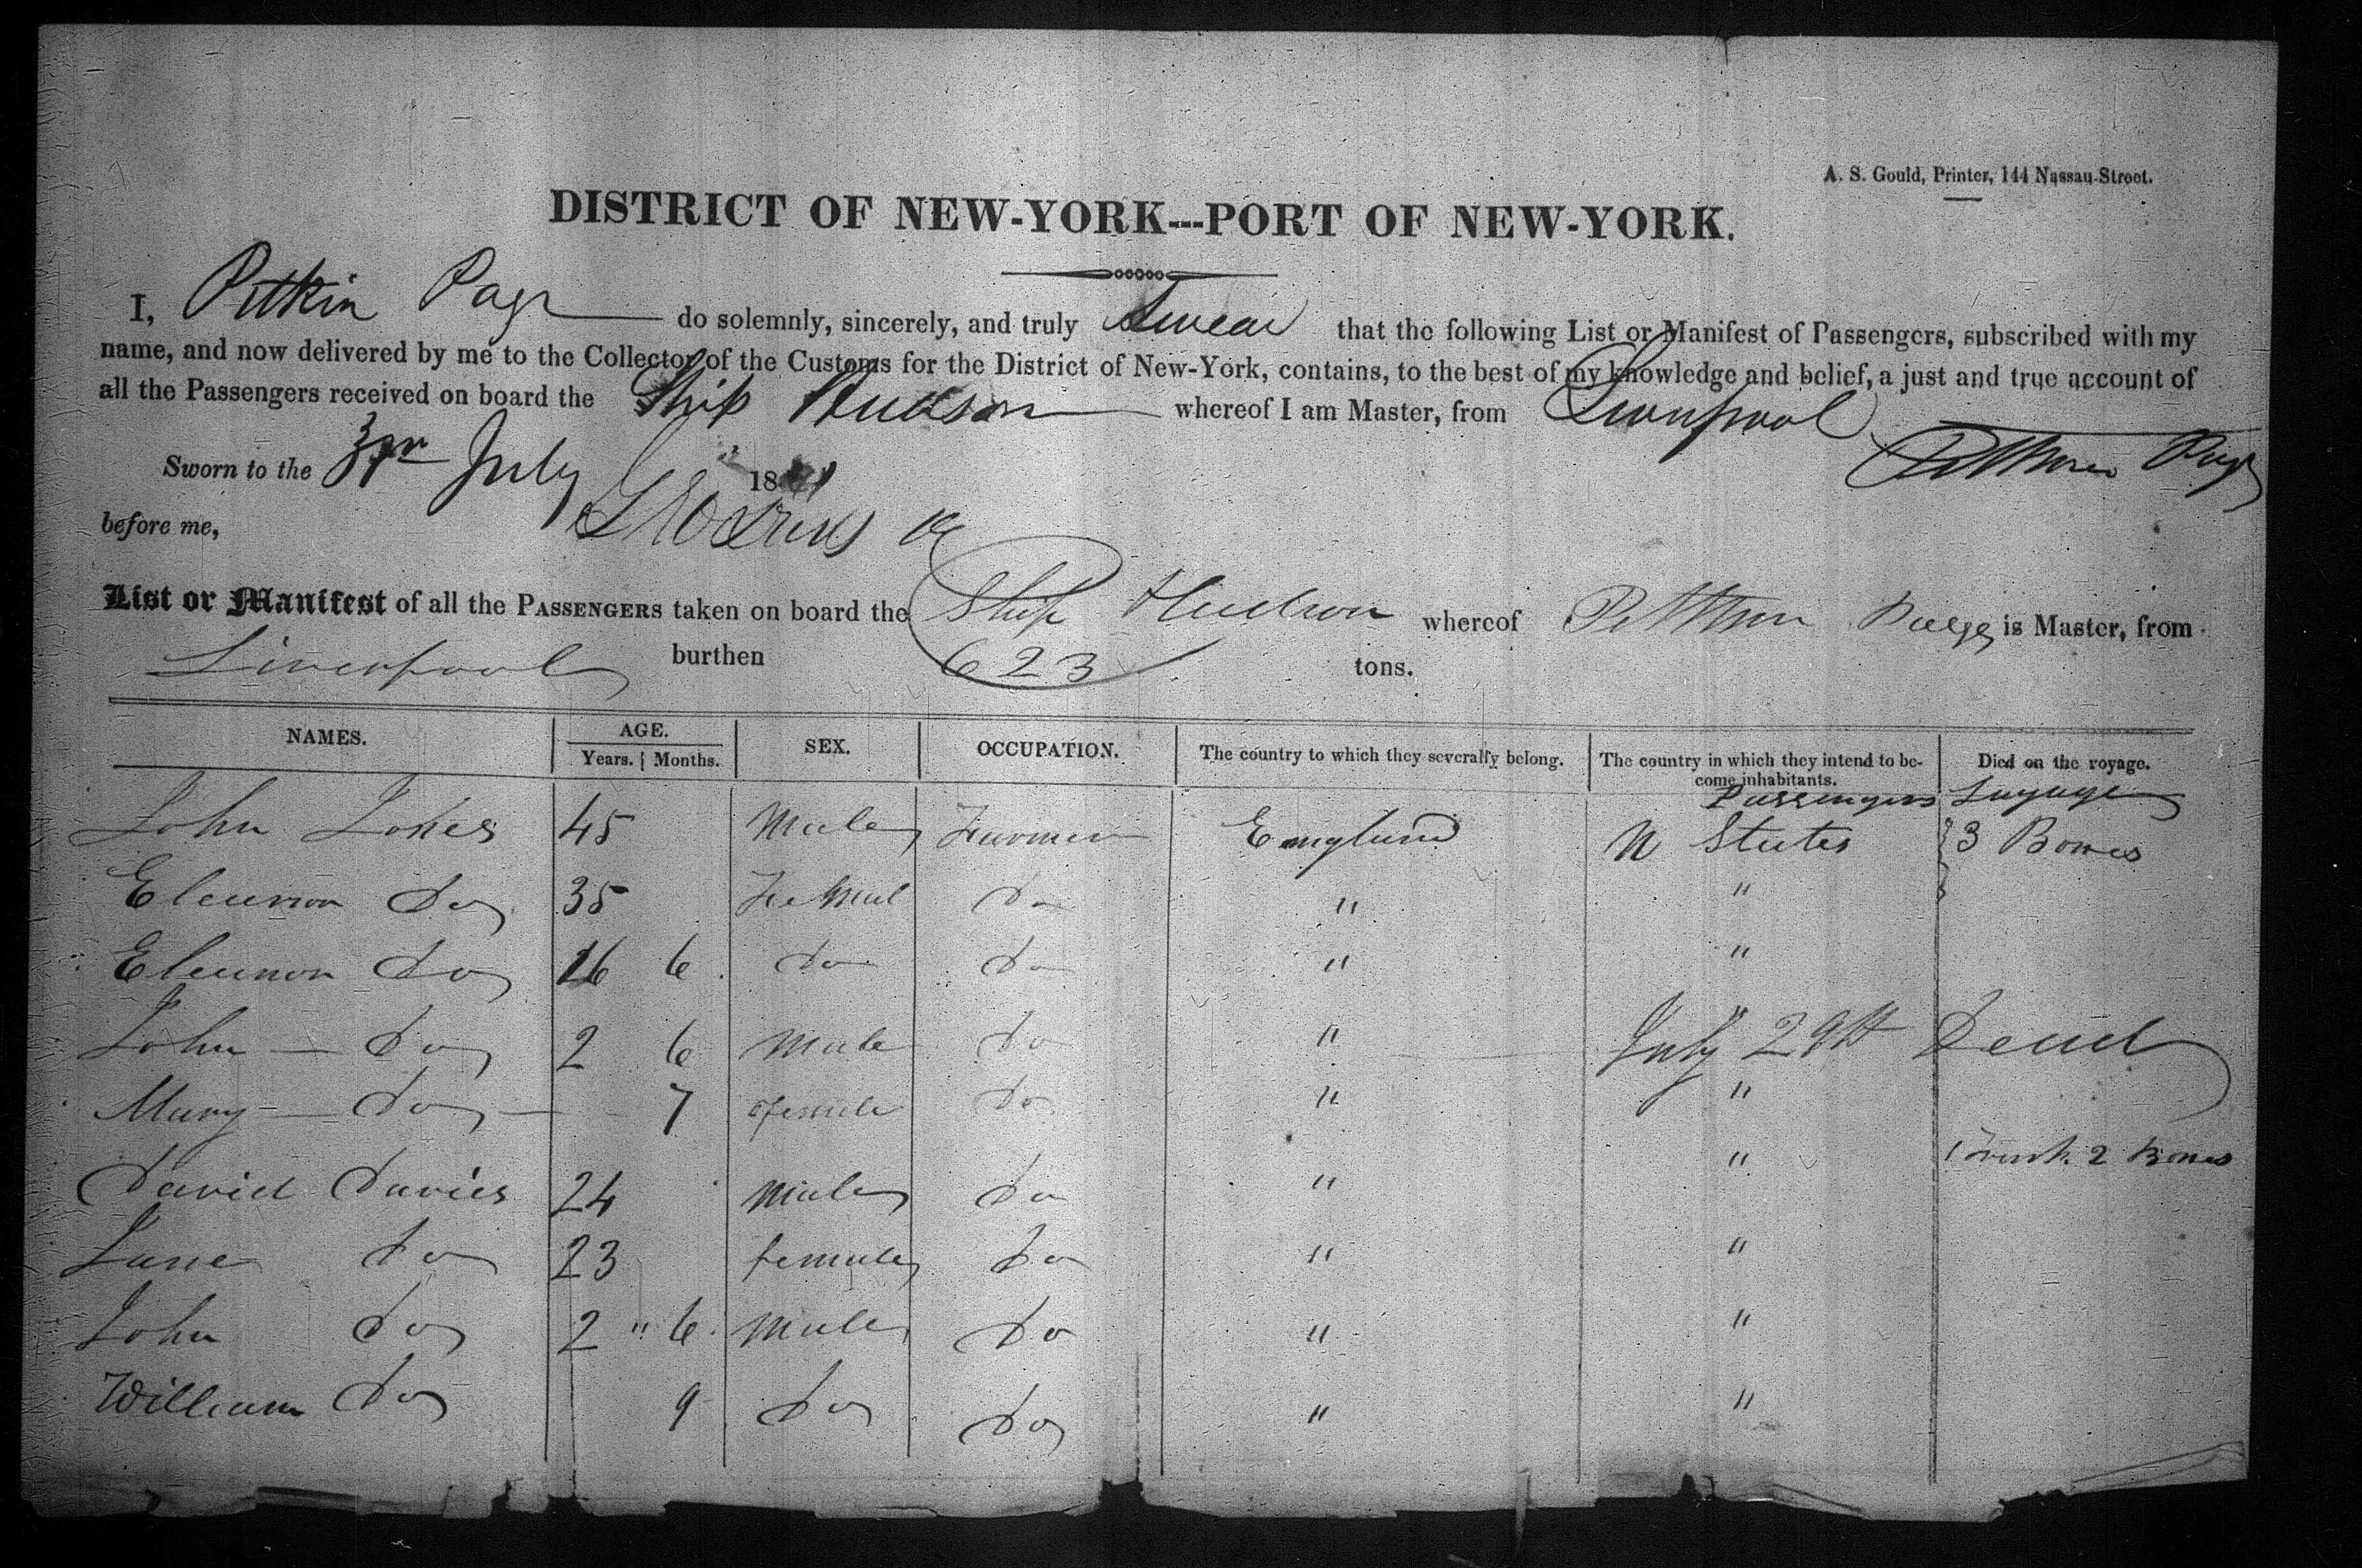 A. S. Gould, Printer, 144 Nassau-Street.
DISTRICT OF NEW-YORK---PORT OF NEW-YORK.
I, Pitkin Page do solemnly, sincerely, and truly Swear that the following List or Manifest of Passengers, subscribed with my
name, and now delivered by me to the Collector of the Customs for the District of New-York, contains, to the best of my knowledge and belief, a just and true account of
all the Passengers received on board the Ship Hudson whereof I am Master, from Liverpool
Sworn to the 31 July 18 Pitkin Page
before me,
List or Manifest of all the PASSENGERS taken on board the Ship Hudson whereof Pitkin Page is Master, from
Liverpool burthen 623 tons.
NAMES. AGE. SEX. OCCUPATION. The country to which they severally belong. The country in which they intend to be- Died on the voyage.
Years. Months. come inhabitants.
Passengers Lugage
John Jones 45 Male Farmer England U States 3 Boxes
Eleanor Do 35 FeMal Do " "
Eleanor Do 16 6 Do Do " "
John Do 2 6 Male Do " " July 29th Dead
Mary Do 7 female Do " "
David Davies 24 Male Do " " 1 Trunk 2 Boxes
Jane Do 23 female Do " "
John Do 2 " 6 Male Do " "
William Do 9 Do Do " "